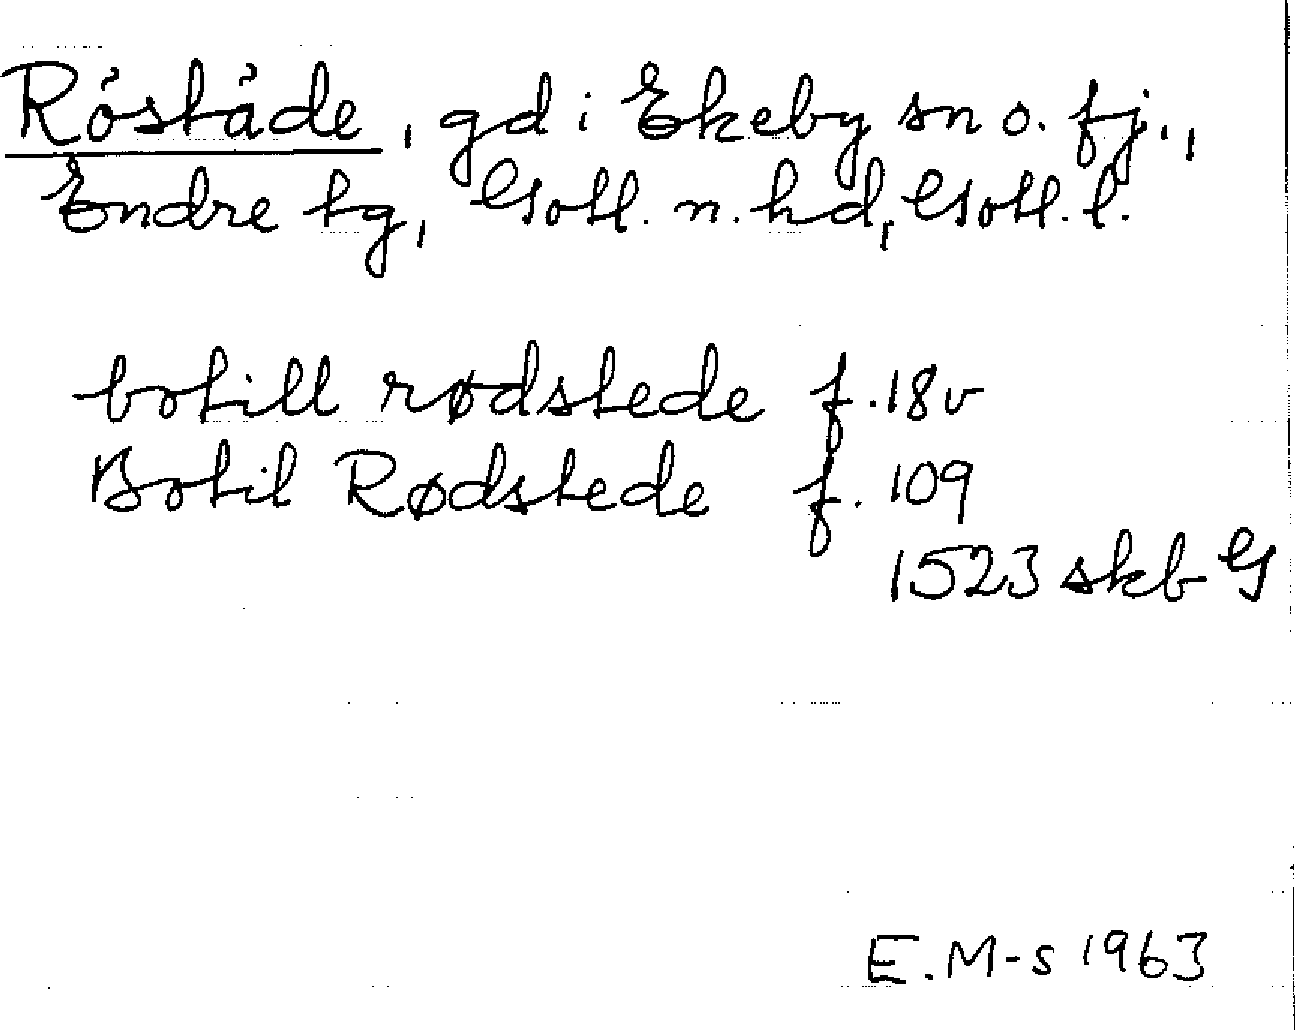 Röstäde, gd i Ekeby sn o. fj.,
Endre tg, Gotl. n. hd, Gotl. l.
botill rødstede f. 18v
Botil Rødstede f. 109
1523 skb G
E. M-s 1963